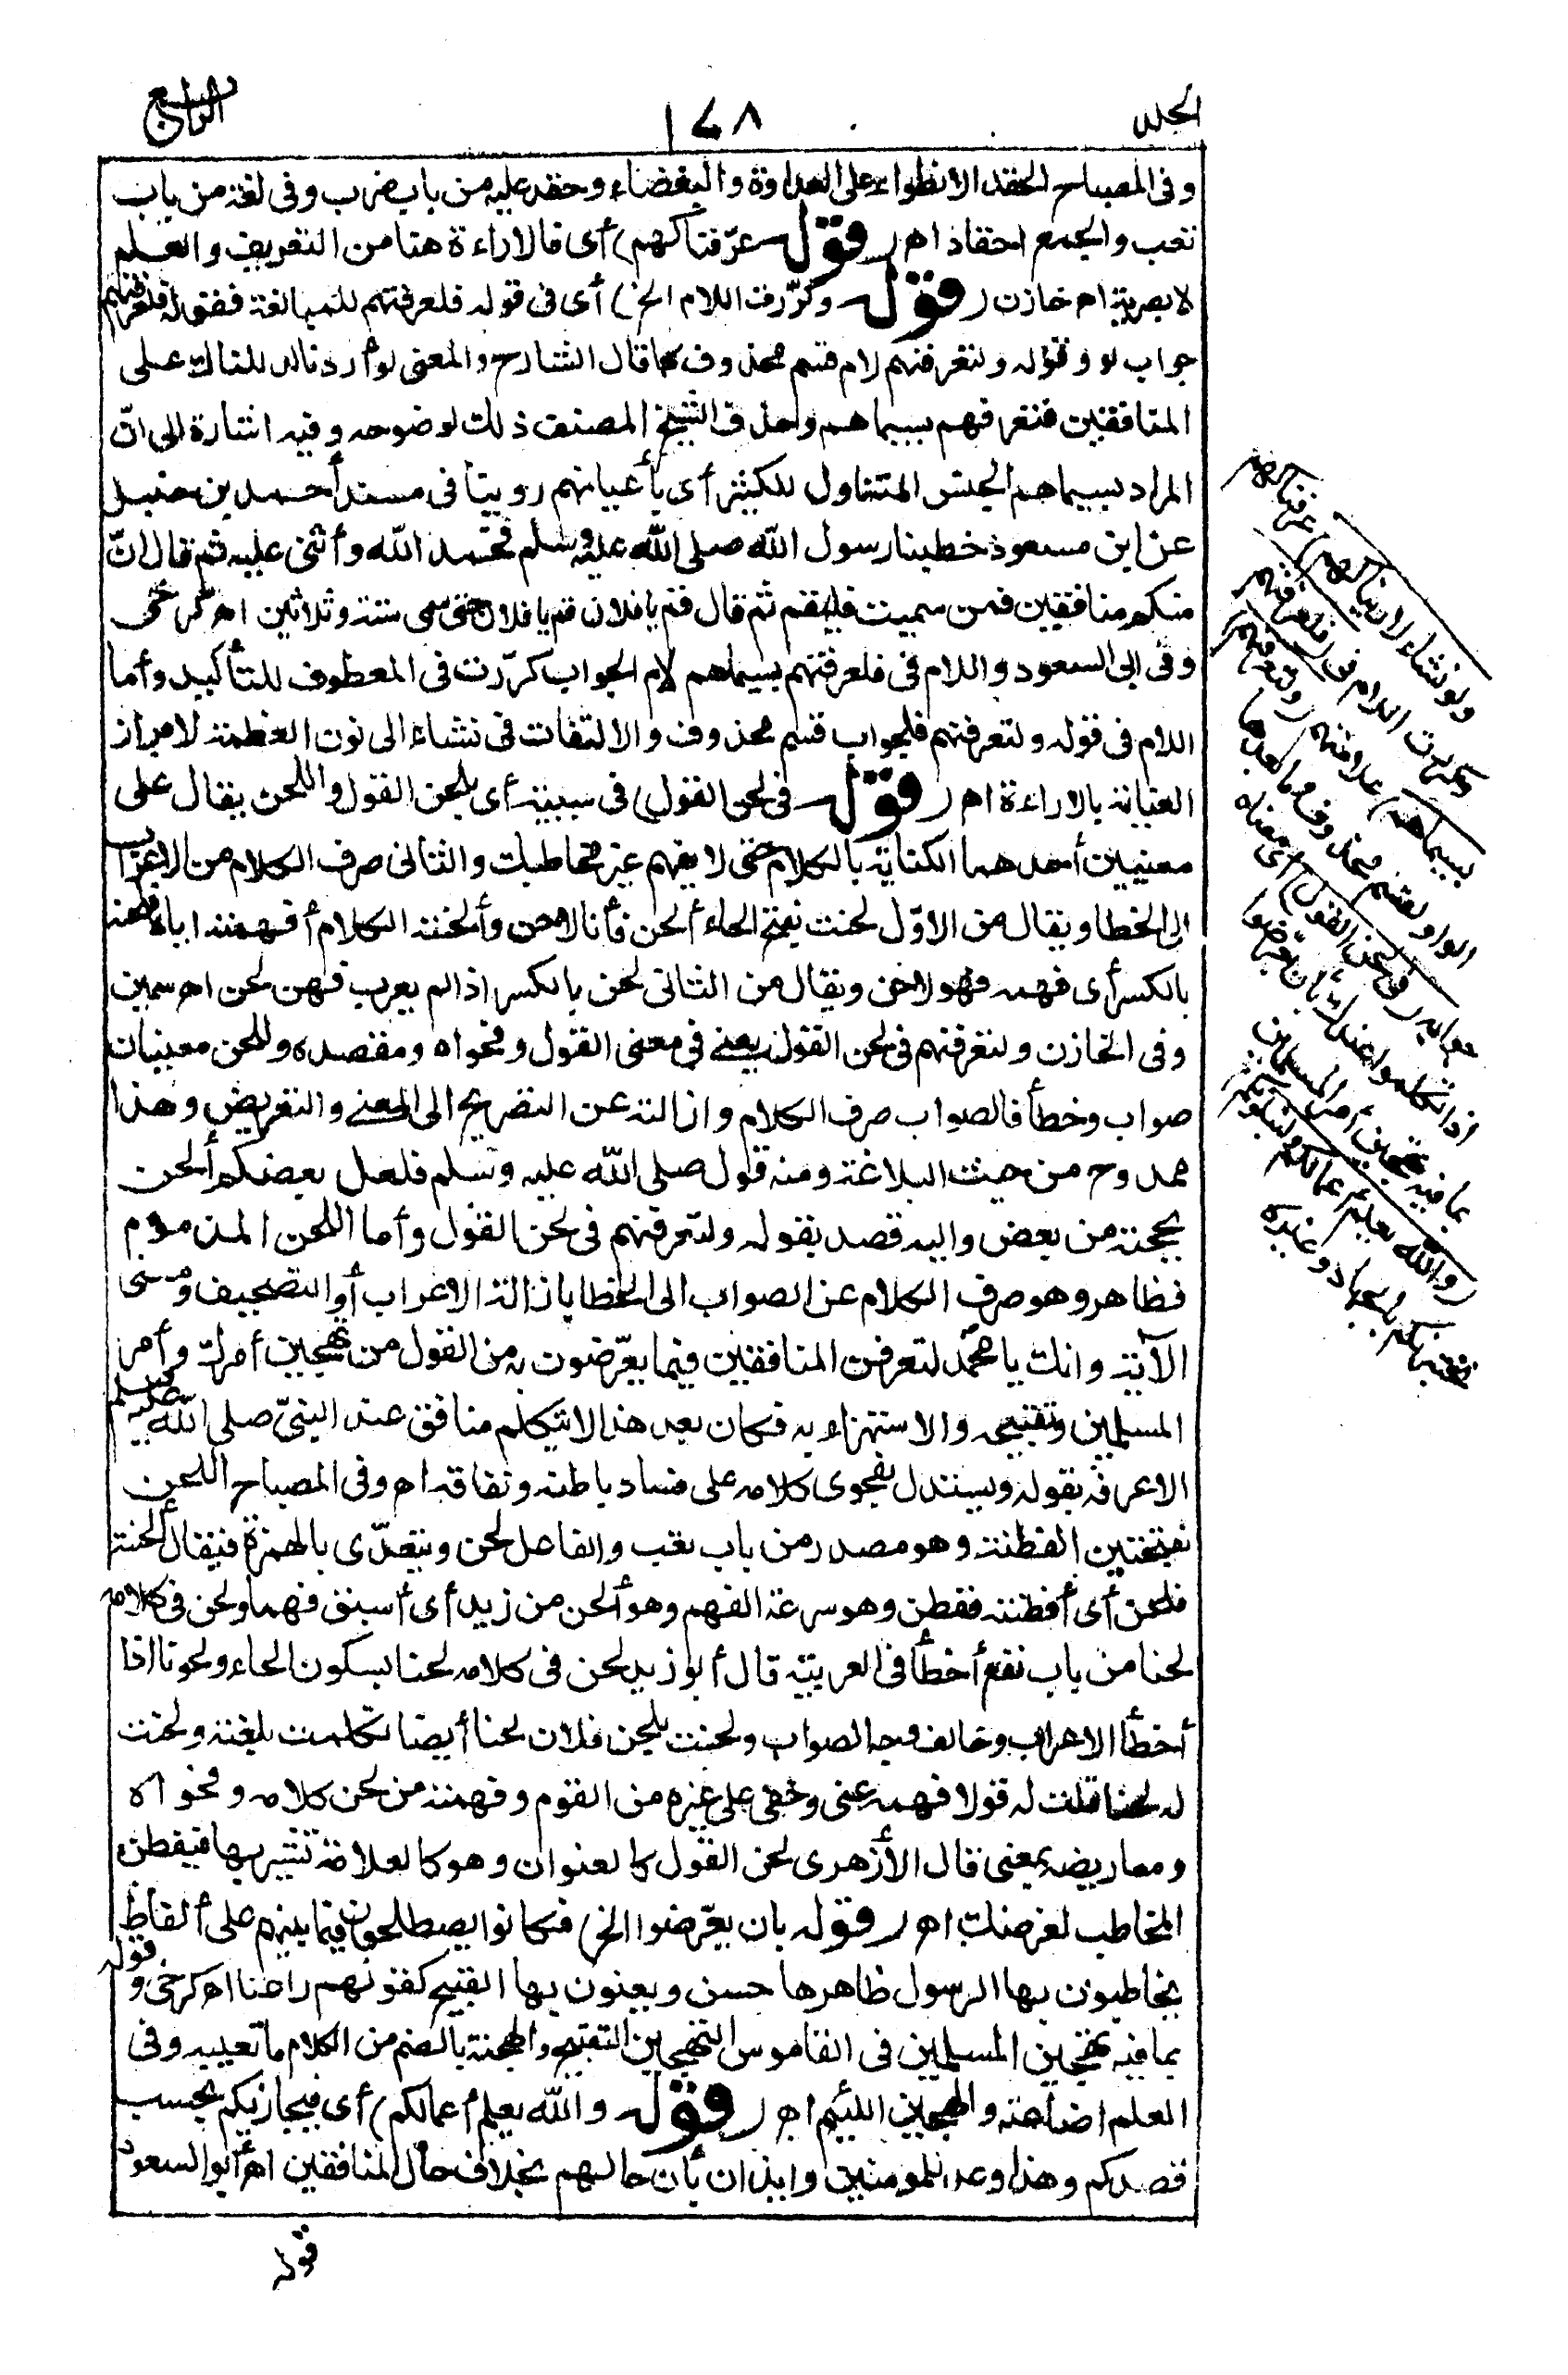 الجلد
١٤٨
الرابع
وفى المصباح الحقد الانطواء على العداوة والبغضاء وحقد عليه من باب ضرب وفى لغة من باب
تعب والجمع احقاد اه (قوله عرّفناكهم) أى فالاراءة هنا من التعريف والعلم
لا بصرية اه خازن (قوله وكرّرت اللام الخ) أى فى قوله فلعرفتهم للمبالغة فقوله فلعرفتهم
جواب لو وقوله ولتعرفنهم لام قسم محذوف كما قال الشارح والمعنى لو أردنا لدللناك على
المنافقين فتعرفهم بسيماهم وحذف الشيخ المصنف ذلك لوضوحه وفيه اشارة الى انّ
المراد بسيماهم الجنس المتناول للكثير أى بأعيانهم روينا فى مسند أحمد بن حنبل
عن ابن مسعود خطبنا رسول الله صلى الله عليه وسلم فحمد الله وأثنى عليه ثم قال انّ
منكم منافقين فمن سميت فليقم ثم قال قم يا فلان قم يا فلان حتى سمى ستة وثلاثين اه كرخى
وفى ابى السعود واللام فى فلعرفتهم بسيماهم لام الجواب كرّرت فى المعطوف للتأكيد وأما
اللام فى قوله ولتعرفنهم فلجواب قسم محذوف والالتفات فى نشاء الى نون العظمة لابراز
العناية بالاراءة اه (قوله فى لحن القول) فى سببية أى بلحن القول واللحن يقال على
معنيين أحدهما الكناية بالكلام حتى لا يفهم غير مخاطبك والثانى صرف الكلام من الاعراب
الى الخطا ويقال من الاوّل لحنت بفتح الحاء ألحن فأنا لاحن وألحنته الكلام أفهمته اياه فلحنه
بالكسر أى فهمه فهو لاحن ويقال من الثانى لحن بالكسر اذا لم يعرب فهو لحن اه سمين
وفى الخازن ولتعرفنهم فى لحن القول يعنى فى معنى القول وفحواه ومقصده وللحن معنيان
صواب وخطأ فالصواب صرف الكلام وازالته عن التصريح الى المعنى والتعريض وهذا
ممدوح من حيث البلاغة ومنه قول صلى الله عليه وسلم فلعل بعضكم ألحن
بحجته من بعض واليه قصد بقوله ولتعرفنهم فى لحن القول وأما اللحن المذموم
فظاهر وهو صرف الكلام عن الصواب الى الخطا بازالة الاعراب أو التصحيف ومعنى
الآية وانك يا محمّد لتعرفن المنافقين فيما يعرّضون به من القول من تهجين أمرك وأمر
المسلمين وتقبيحه والاستهزاء به فكان بعد هذا لا يتكلم منافق عند النبىّ صلى الله عليه وسلم
الا عرفه بقوله ويستدل بفحوى كلامه على فساد باطنه ونفاقه اه وفى المصباح اللحن
بفتحتين الفطنة وهو مصدر من باب تعب والفاعل لحن ويتعدّى بالهمزة فيقال ألحنته
فلحن أى أفطنته ففطن وهو سرعة الفهم وهو ألحن من زيد أى أسبق فهما ولحن فى كلامه
لحنا من باب نفع أخطأ فى العربية قال أبو زيد لحن فى كلامه لحنا بسكون الحاء ولحونا اذا
أخطأ الاعراب وخالف وجه الصواب ولحنت بلحن فلان لحنا أيضا تكلمت بلغته ولحنت
له لحنا قلت له قولا فهمه عنى وخفى على غيره من القوم وفهمته من لحن كلامه وفحواه
ومعاريضه بمعنى قال الأزهرى لحن القول كالعنوان وهو كالعلامة تشير بها فيفطن
المخاطب لغرضك اه (قوله بان يعرّضوا الخ) فكانوا يصطلحون فيما بينهم على ألفاظ
يخاطبون بها الرسول ظاهرها حسن ويعنون بها القبيح كقولهم راعنا اه كرخى وقوله
بما فيه تهجين المسلمين فى القاموس التهجين التقبيح والهجنة بالضم من الكلام ما تعيبه وفى
العلم اضاعته والهجين اللئيم اه (قوله والله يعلم أعمالكم) أى فيجازيكم بحسب
قصدكم وهذا وعد للمومنين وايذان بأن حالهم بخلاف حال المنافقين اه أبو السعود
قوله
ولو نشاء لاريناكهم) عرفناكهم
وكررت اللام فى (فلعرفتهم
بسيماهم) علامتهم (ولتعرفنهم)
الواو لقسم محذوف وما بعدها
جوابه (فى لحن القول) أى معناه
اذا تكلموا عندك بأن يعرّضوا
بما فيه تهجين أمر المسلمين
(والله يعلم أعمالكم ولنبلونكم)
نختبرنكم بالجهاد وغيره